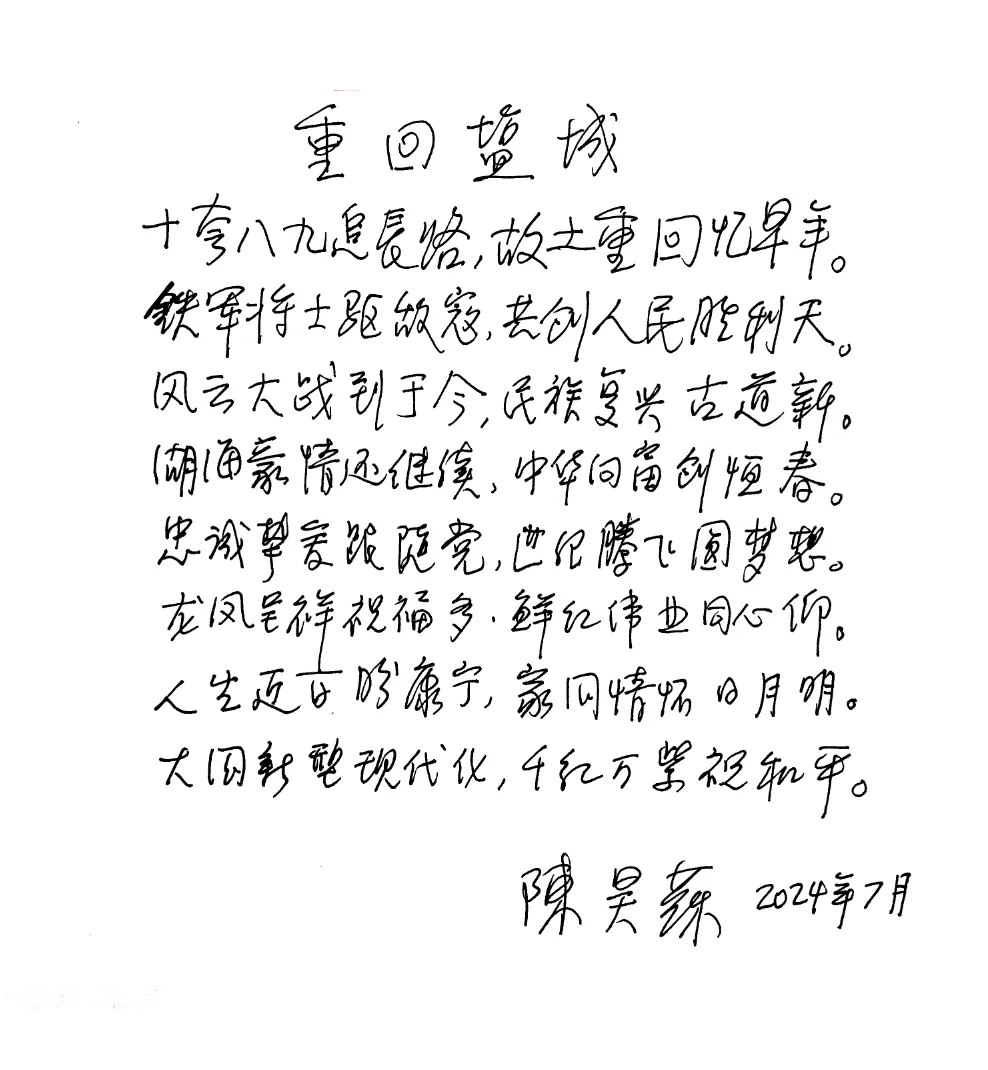 重回盐城
十夸八九追長路，故土重回忆早年。
铁军将士驱敌寇，共创人民胜利天。
风云大战到于今，民族复兴古道新。
湖海豪情还继续，中华向富创恒春。
忠诚挚爱跟随党，世纪腾飞圆梦想。
龙凤呈祥祝福多．鲜红伟业同心仰。
人生近百盼康宁，家国情怀日月明。
大国新型现代化，千红万紫祝和平。
陳昊蘇 2024年7月